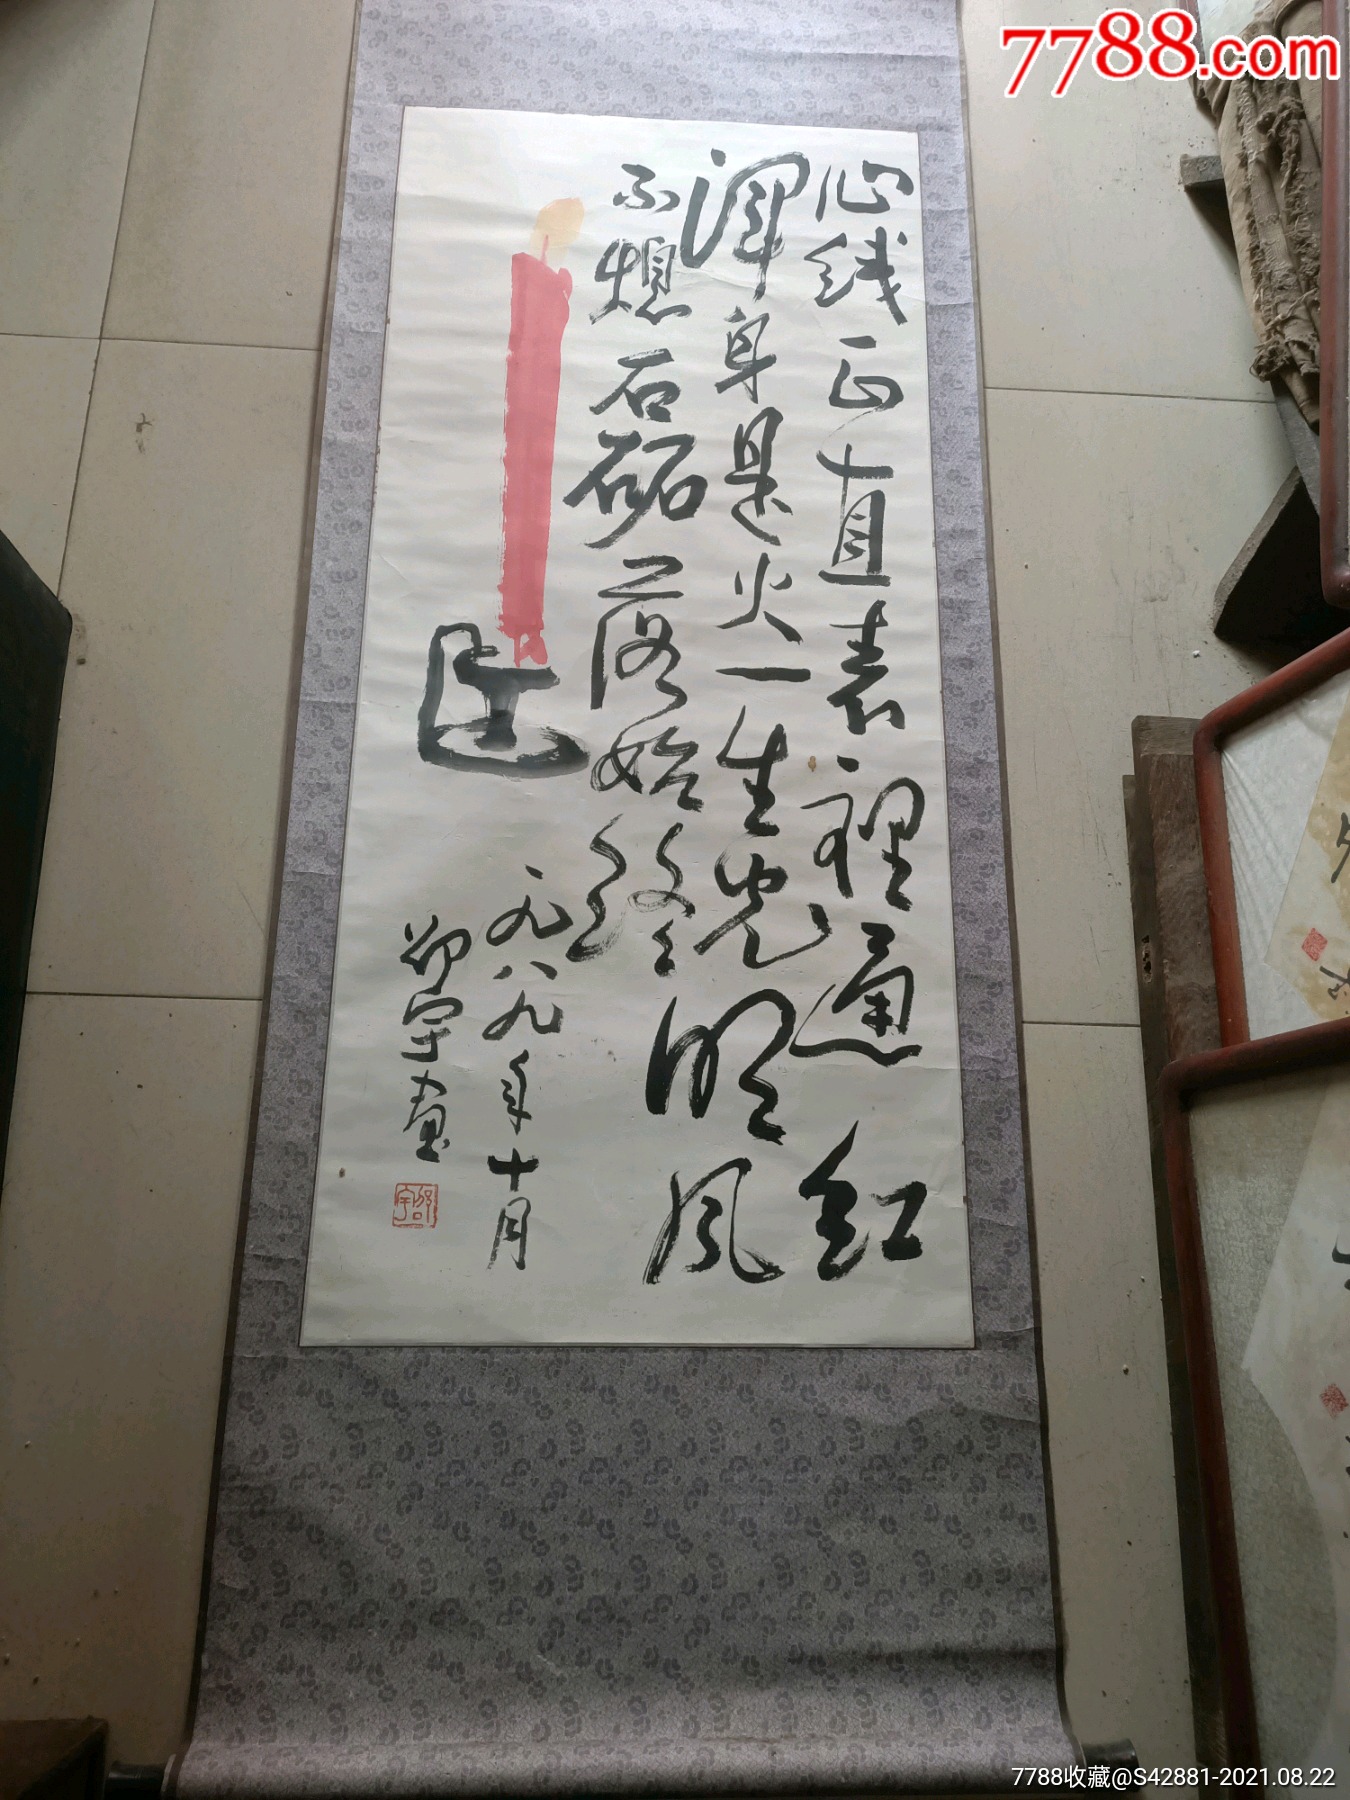 7788.com
心线正直表裡通红
浑身是火一生光明风
不熄磊落始终
一九八九年十月
邵宇画
邵宇
7788收藏@S42881-2021.08.22